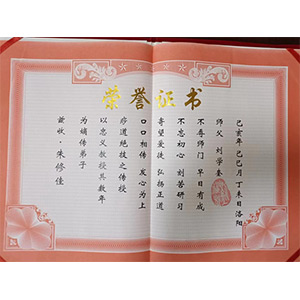 荣誉证书
兹收·朱修佳
为嫡传弟子
以忠义教授其数年
道绝技之传授
口口相传 发心为上
寄望爱徒 弘扬正道
不忘初心 刻苦研习
不辱师门 早日有成
师父 刘学奎
己亥年 己巳月 丁未日 洛阳